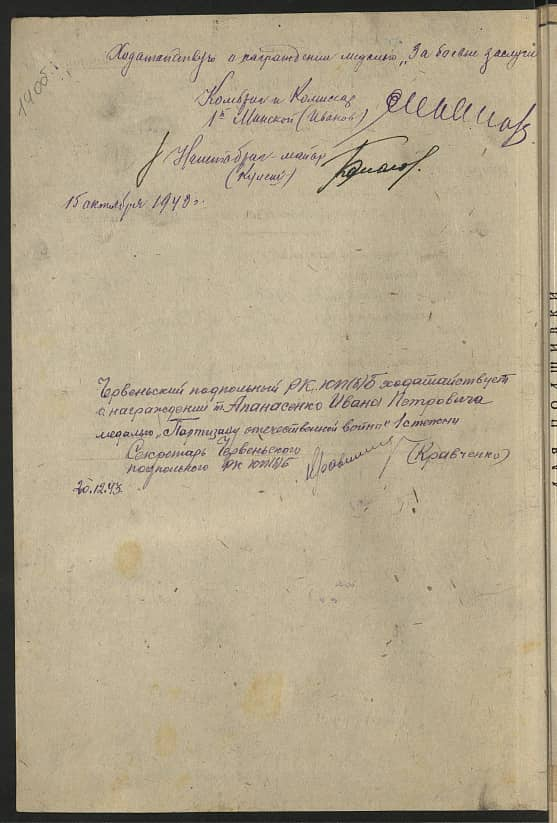 Ходатайствую о награждении медалью „За боевые заслуги
Комбриг и Комиссар
1й Минской (Иванов)
Наштабриг-майор
15 октября 1943 г.
Червеньский подпольный РК КП(б)Б ходатайствует
о награждении т. Апанасенко Ивана Петровича
медалью „Партизану отечественной войны" 1 степени
Секретарь Червеньского
подпольного РК КП(б)Б (Кравченко)
20.12.43.